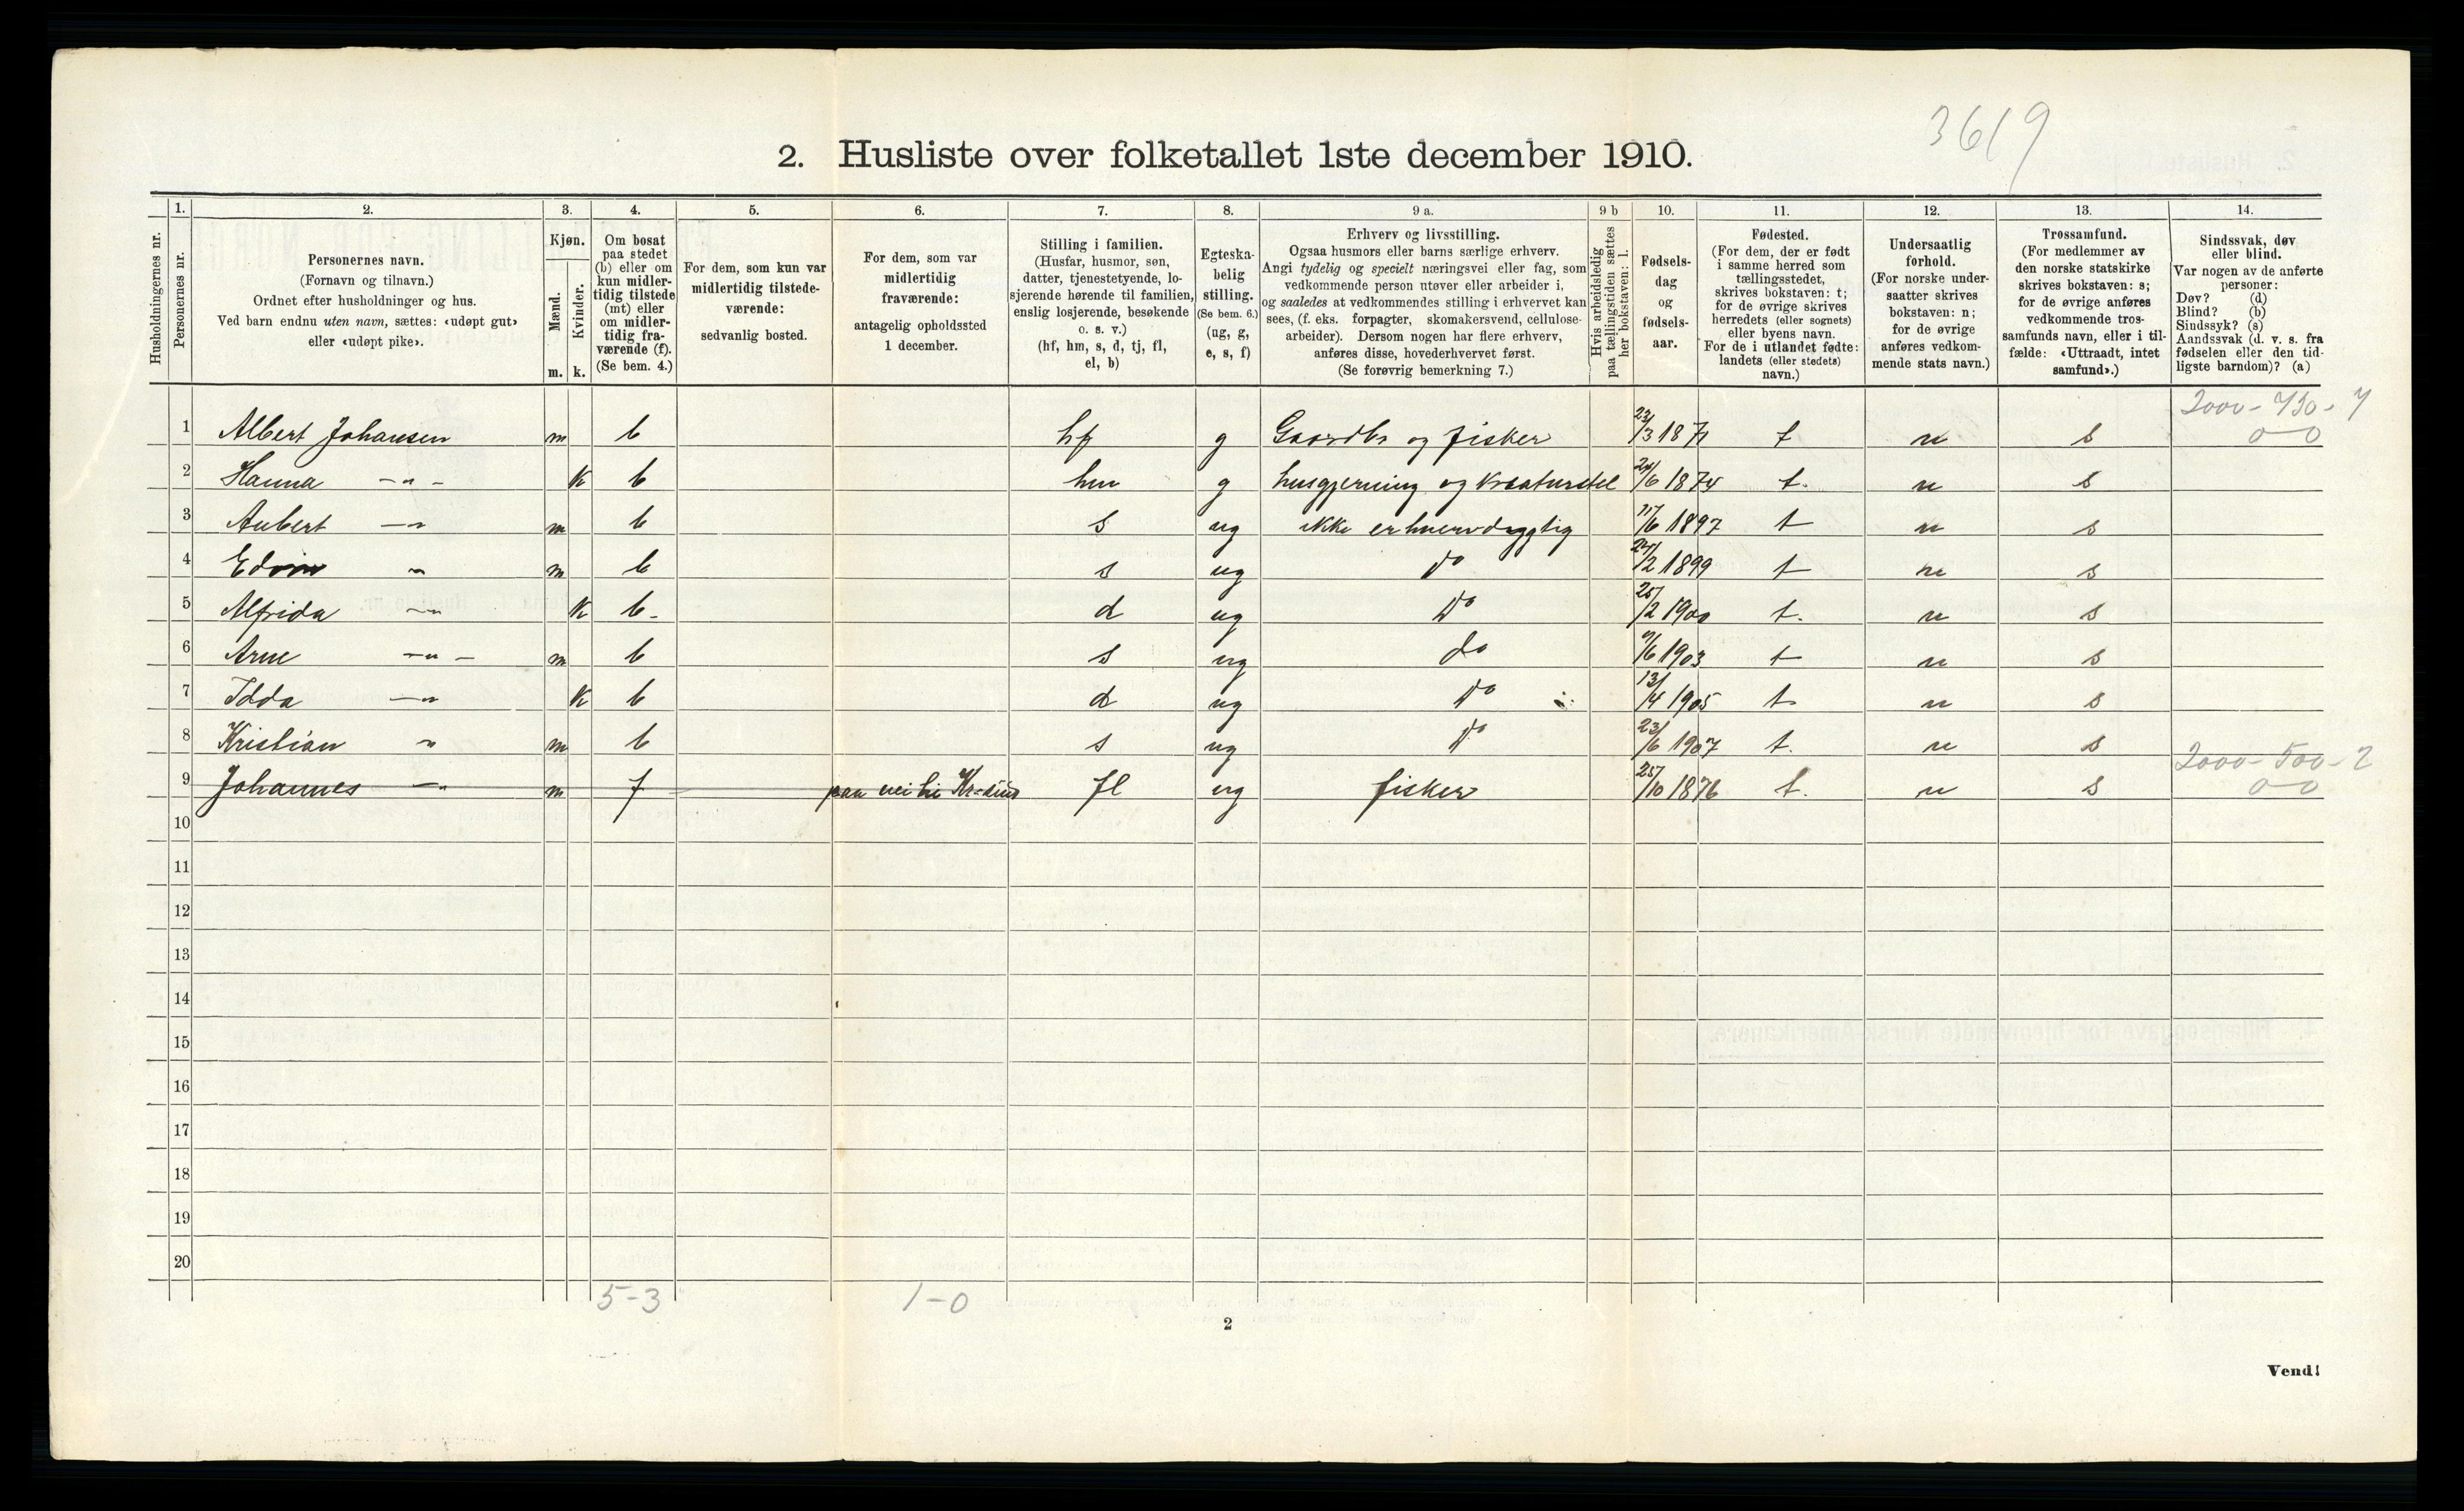 3619
2. Husliste over folketallet 1ste december 1910.
Husholdningernes nr.
1. Personernes nr.
2. Personernes navn.
(Fornavn og tilnavn.)
Ordnet efter husholdninger og hus.
Ved barn endnu uten navn, sættes: «udøpt gut»
eller «udøpt pike».
3. Kjøn.
Mænd. m.
Kvinder. k.
4. Om bosat
paa stedet
(b) eller om
kun midler-
tidig tilstede
(mt) eller
om midler-
tidig fra-
værende (f).
(Se bem. 4.)
5. For dem, som kun var
midlertidig tilstede-
værende:
sedvanlig bosted.
6. For dem, som var
midlertidig
fraværende:
antagelig opholdssted
1 december.
7. Stilling i familien.
(Husfar, husmor, søn,
datter, tjenestetyende, lo-
sjerende hørende til familien,
enslig losjerende, besøkende
o. s. v.)
(hf, hm, s, d, tj, fl,
el, b)
8. Egteska-
belig
stilling.
(Se bem. 6.)
(ug, g,
e, s, f)
9 a. Erhverv og livsstilling.
Ogsaa husmors eller barns særlige erhverv.
Angi tydelig og specielt næringsvei eller fag, som
vedkommende person utøver eller arbeider i,
og saaledes at vedkommendes stilling i erhvervet kan
sees, (f. eks. forpagter, skomakersvend, cellulose-
arbeider). Dersom nogen har flere erhverv,
anføres disse, hovederhvervet først.
(Se forøvrig bemerkning 7.)
9 b Hvis arbeidsledig
paa tællingstiden sættes
her bokstaven: l.
10. Fødsels-
dag
og
fødsels-
aar.
11. Fødested.
(For dem, der er født
i samme herred som
tællingsstedet,
skrives bokstaven: t;
for de øvrige skrives
herredets (eller sognets)
eller byens navn.
For de i utlandet fødte:
landets (eller stedets)
navn.)
12. Undersaatlig
forhold.
(For norske under-
saatter skrives
bokstaven: n;
for de øvrige
anføres vedkom-
mende stats navn.)
13. Trossamfund.
(For medlemmer av
den norske statskirke
skrives bokstaven: s;
for de øvrige anføres
vedkommende tros-
samfunds navn, eller i til-
fælde: «Uttraadt, intet
samfund».)
14. Sindssvak, døv
eller blind.
Var nogen av de anførte
personer:
Døv? (d)
Blind? (b)
Sindssyk? (s)
Aandssvak (d. v. s. fra
fødselen eller den tid-
ligste barndom)? (a)
1 Albert Johansen m b hf g Gaardbr og fisker 23/3 1871 t n s 2000-750-7 0-0
2 Hanna -"- k b hm g husgjerning og kreaturstel 24/6 1874 t. n s
3 Aubert -" m b s ug ikke erhvervdygtig 17/6 1897 t n s
4 Edvin " m b s ug do 24/2 1899 t n s
5 Alfrida -" k b- d ug do 25/2 1900 t. n s
6 Arne -"- m b s ug do 9/6 1903 t n s
7 Idda -" k b d ug do 13/4 1905 t n s
8 Kristian " m b s ug do 23/6 1907 t. n s
9 Johannes -" m f paa vei til Kr-sund fl ug fisker 25/10 1876 t. n s 2000-500-2 0-0
10
11
12
13
14
15
16
17
18
19
20
5-3 1-0
2
Vend!